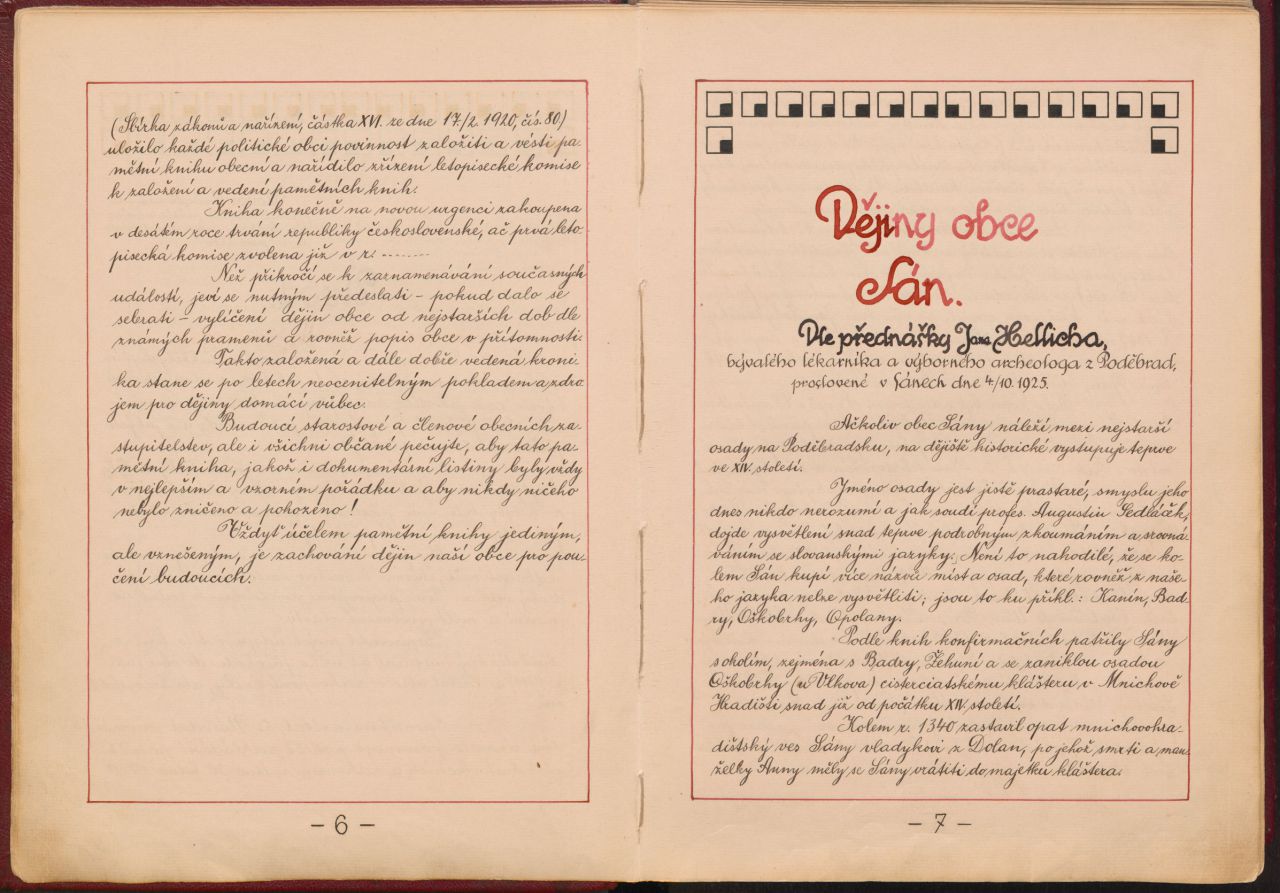 (Sbírka zákonů a nařízení, částka XVI. ze dne 17./2. 1920, čís. 80)
uložilo každé politické obci povinnost založiti a vésti pa-
mětní knihu obecní a nařídilo zřízení letopisecké komise
k založení a vedení pamětních knih.
Kniha konečně na novou urgenci zakoupena
v desátém roce trvání republiky československé, ač prvá leto
pisecká komise zvolena již v r. ........
Než přikročí se k zaznamenávání současných
událostí, jeví se nutným předeslati - pokud dalo se
sebrati - vylíčení dějin obce od nejstarších dob dle
známých pramenů a rovněž popis obce v přítomnosti.
Takto založená a dále dobře vedená kroni-
ka stane se po letech neocenitelným pokladem a zdro
jem pro dějiny domácí vůbec.
Budoucí starostové a členové obecních za-
stupitelstev, ale i všichni občané pečujte, aby tato pa-
mětní kniha, jakož i dokumentární listiny byly vždy
v nejlepším a vzorném pořádku a aby nikdy ničeho
nebylo zničeno a pohozeno!
Vždyť účelem pamětní knihy jediným,
ale vznešeným, je zachování dějin naší obce pro pou-
čení budoucích.
- 6 -
Dějiny obce
Sán.
Dle přednášky Jana Hellicha,
bývalého lékárníka a výborného archeologa z Poděbrad,
proslovené v Sánech dne 4./10. 1925.
Ačkoliv obec Sány náleží mezi nejstarší
osady na Poděbradsku, na dějiště historické vystupuje teprve
ve XIV. století.
Jméno osady jest jistě prastaré, smyslu jeho
dnes nikdo nerozumí a jak soudí profes. Augustin Sedláček,
dojde vysvětlení snad teprve podrobným zkoumáním a srovná-
váním se slovanskými jazyky. Není to nahodilé, že se ko-
lem Sán kupí více názvů míst a osad, které rovněž z naše-
ho jazyka nelze vysvětliti; jsou to ku příkl.: Kanín, Bad-
ry, Oškobrhy, Opolany.
Podle knih konfirmačních patřily Sány
s okolím, zejména s Badry, Žehuní a se zaniklou osadou
Oškobrhy (u Vlkova) cisterciatskému klášteru v Mnichově
Hradišti snad již od počátku XIV. století.
Kolem r. 1340 zastavil opat mnichovohra-
dištský ves Sány vladykovi z Dolan, po jehož smrti a man-
želky Anny měly se Sány vrátiti do majetku kláštera.
- 7 -